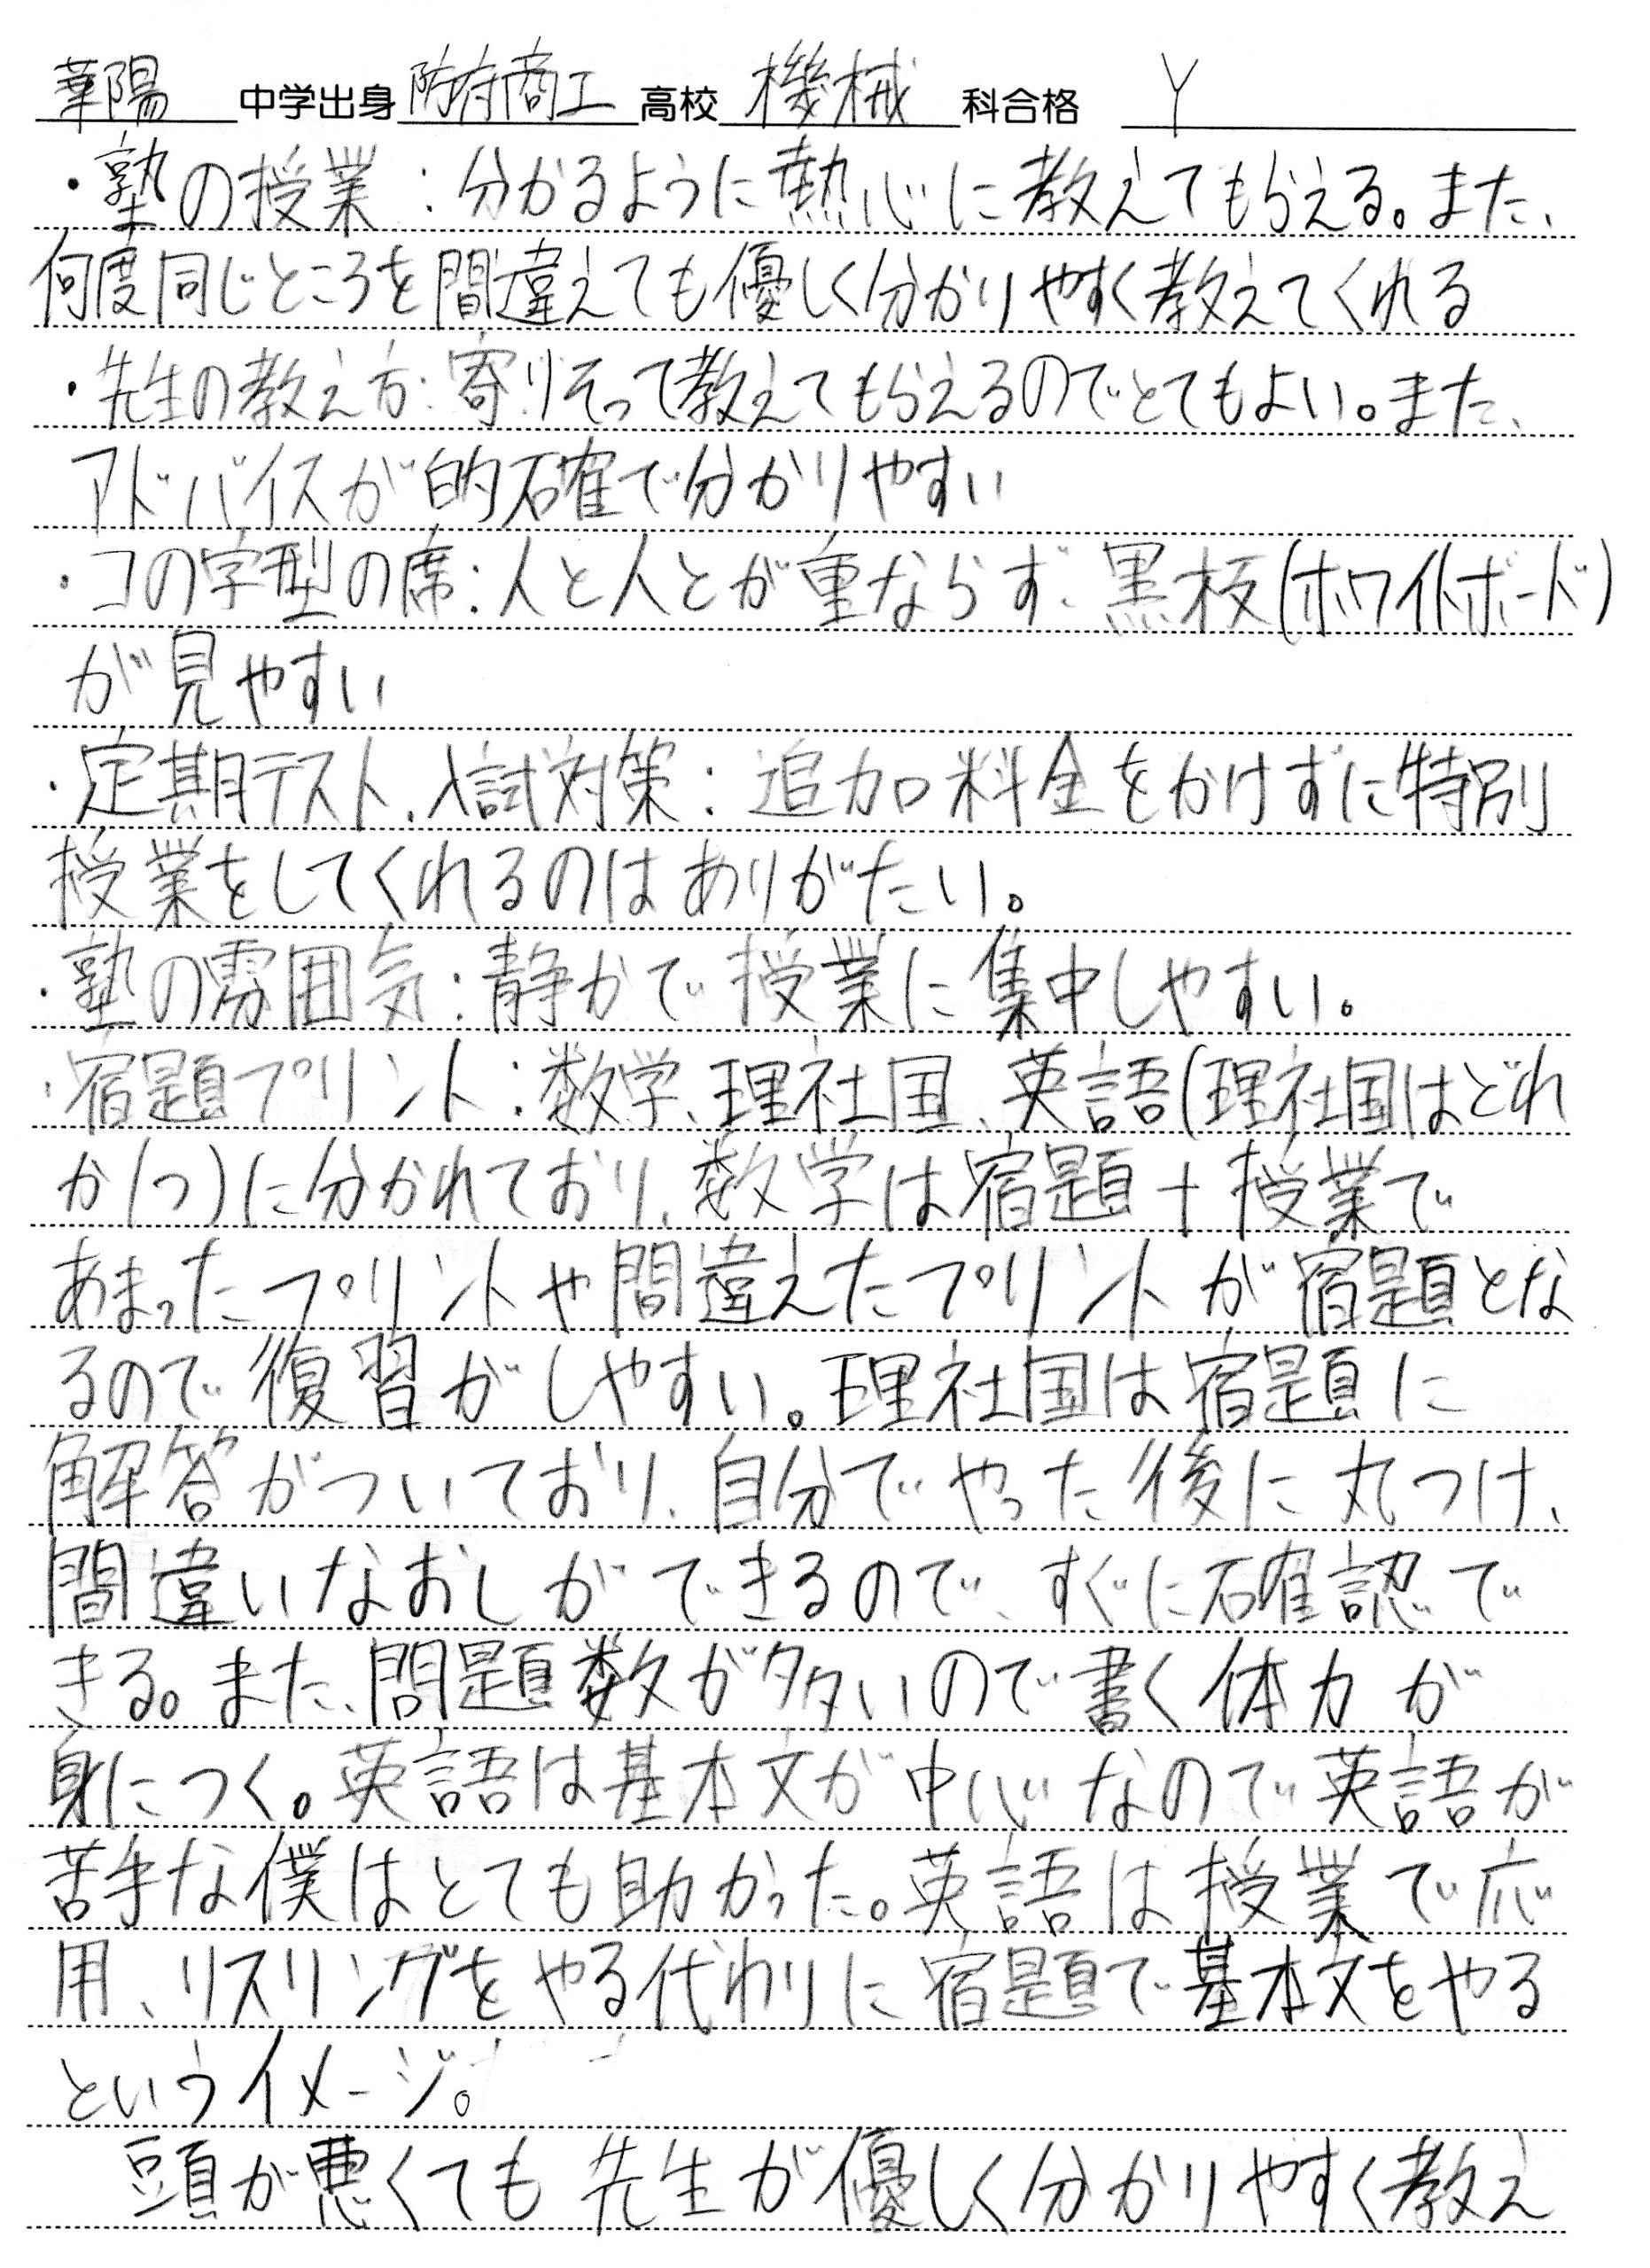 華陽 中学出身 防府商工 高校 機械 科合格 Y
・塾の授業：分かるように熱心に教えてもらえる。また、
何度同じところを間違えても優しく分かりやすく教えてくれる
・先生の教え方：寄りそって教えてもらえるのでとてもよい。また、
アドバイスが的確で分かりやすい
・コの字型の席：人と人とが重ならず、黒板(ホワイトボード)
が見やすい
・定期テスト、入試対策：追加料金をかけずに特別
授業をしてくれるのはありがたい。
・塾の雰囲気：静かで授業に集中しやすい。
・宿題プリント：数学、理社国、英語(理社国はどれ
か1つ)に分かれており、数学は宿題+授業で
あまったプリントや間違えたプリントが宿題とな
るので復習がしやすい。理社国は宿題に
解答がついており、自分でやった後に丸つけ、
間違いなおしができるので、すぐに確認で
きる。また、問題数が多いので書く体力が
身につく。英語は基本文が中心なので英語が
苦手な僕はとても助かった。英語は授業で応
用、リスリングをやる代わりに宿題で基本文をやる
というイメージ。
頭が悪くても先生が優しく分かりやすく教え